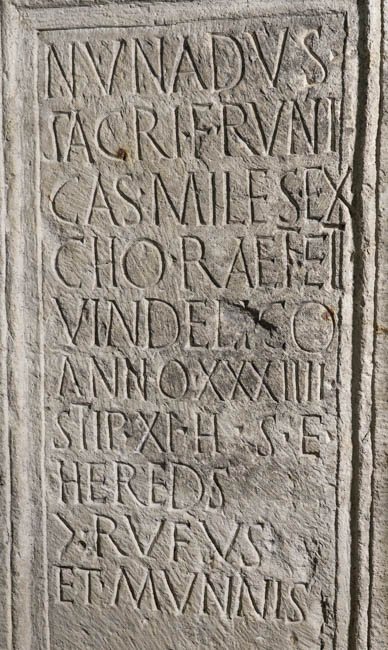 NVNADVS
SACRI·F·RVNI
CAS·MILES EX
CHO·RAET·ET
VINDELICO
ANNO·XXXIIII
STIP·XI·H·S·E
HEREDS
Ɔ·RVFVS
ET·MVNNIS